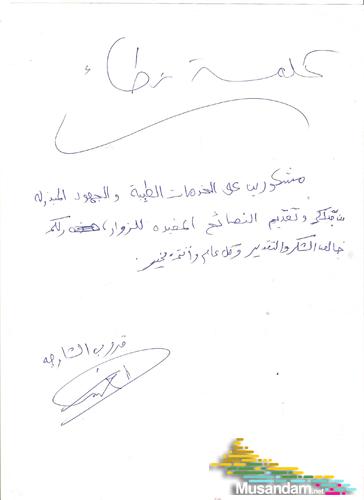 كلمة
مشكورين على الخدمات الطيبة والجهود المبذوله
وتقديم النصائح المفيده للزوار، ولكم
خالص الشكر والتقدير وكل عام وأنتم بخير.
الشارجه
Musandam.net